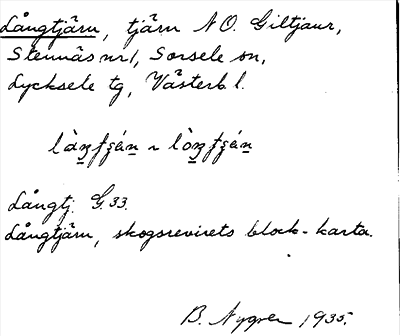 Långtjärn, tjärn N O. Giltjaur,
Stennäs nr 1, Sorsele sn,
Lycksele tg, Västerb l.
Långtj. G. 33.
Långtjärn, skogsrevirets block-karta.
B. Nygren 1935.